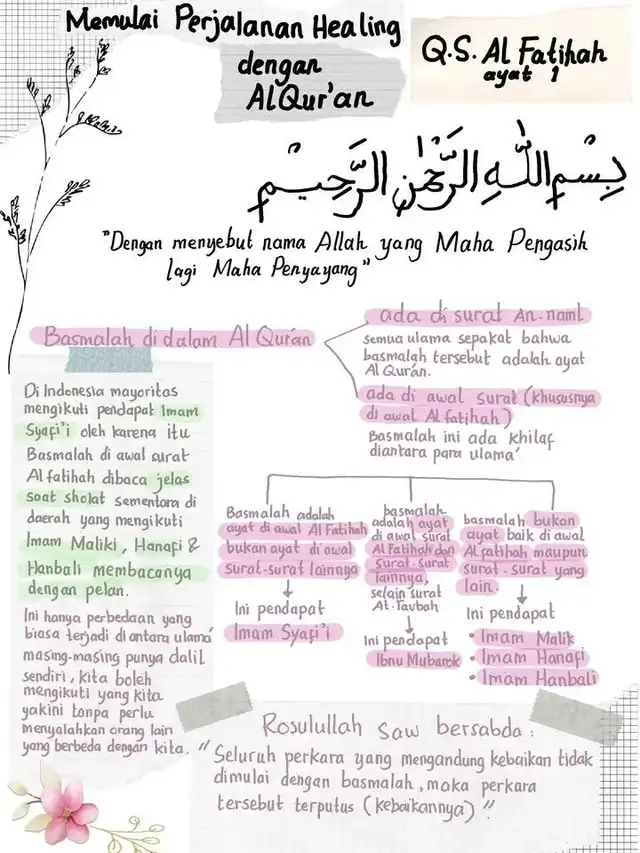 Memulai Perjalanan Healing
dengan
AlQur'an
Q.S. Al Fatihah
ayat 1
بِسْمِ اللّٰهِ الرَّحْمٰنِ الرَّحِيْمِ
"Dengan menyebut nama Allah yang Maha Pengasih
lagi Maha Penyayang"
Basmalah di dalam Al Qur'an
ada di surat An-naml
semua ulama sepakat bahwa
basmalah tersebut adalah ayat
Al Qur'an.
ada di awal surat (khususnya
di awal Al fatihah)
Basmalah ini ada khilaf
diantara para ulama'
Di Indonesia mayoritas
mengikuti pendapat Imam
Syafi'i oleh karena itu
Basmalah di awal surat
Al fatihah dibaca jelas
saat sholat sementara di
daerah yang mengikuti
Imam Maliki, Hanafi &
Hanbali membacanya
dengan pelan.
Ini hanya perbedaan yang
biasa terjadi diantara ulama'
masing-masing punya dalil
sendiri, kita boleh
mengikuti yang kita
yakini tanpa perlu
menyalahkan orang lain
yang berbeda dengan kita.
Basmalah adalah
ayat di awal Al Fatihah
bukan ayat di awal
surat-surat lainnya
Ini pendapat
Imam Syafi'i
basmalah
adalah ayat
di awal surat
Al Fatihah dan
surat-surat
lainnya,
selain surat
At-Taubah
Ini pendapat
Ibnu Mubarok
basmalah bukan
ayat baik di awal
Al fatihah maupun
surat-surat yang
lain.
Ini pendapat
• Imam Malik
• Imam Hanafi
• Imam Hanbali
Rosulullah saw bersabda:
"Seluruh perkara yang mengandung kebaikan tidak
dimulai dengan basmalah, maka perkara
tersebut terputus (kebaikannya)".